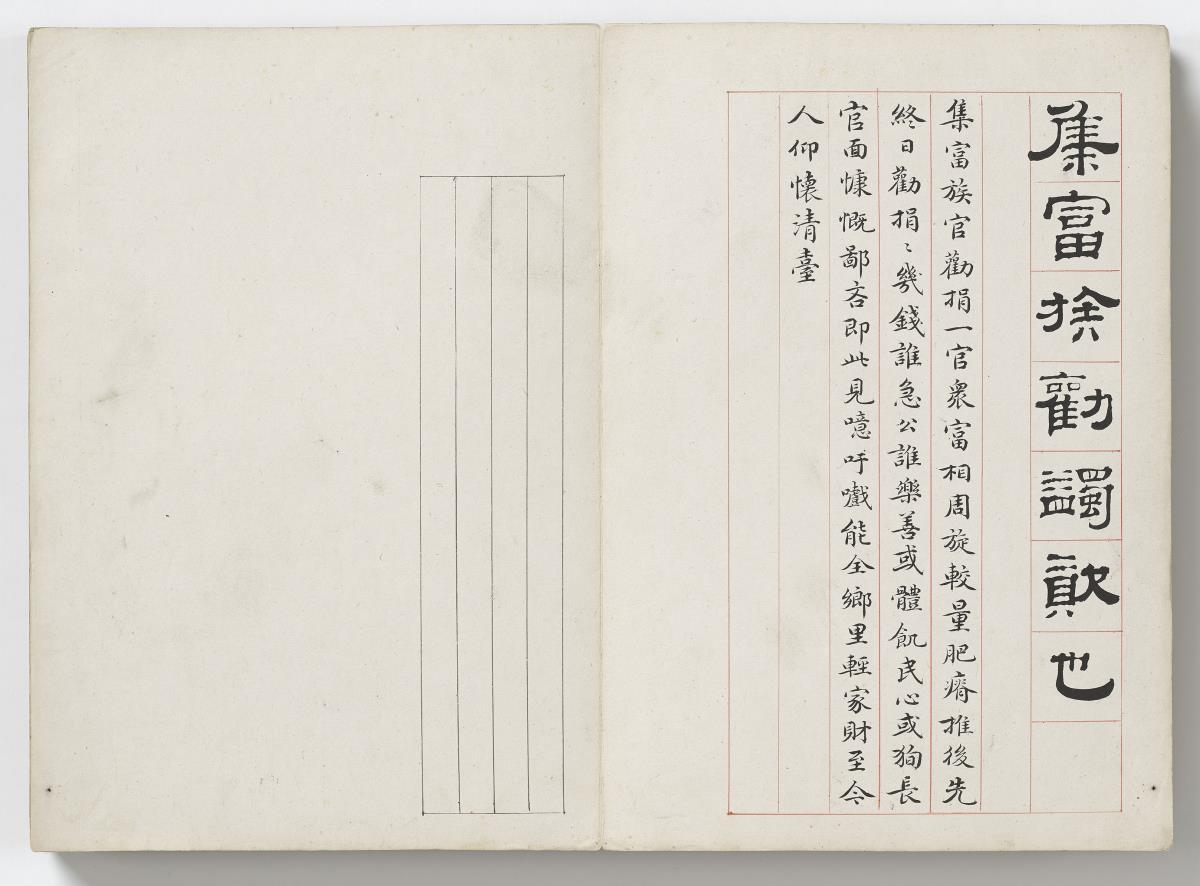 集富族勸蠲資也
集富族官勸捐一官衆富相周旋較量肥瘠推後先
終日勸捐〻幾錢誰急公誰樂善或體飢民心或狥長
官面慷慨鄙吝即此見噫吁嚱能全鄉里輕家財至今
人仰懷清臺